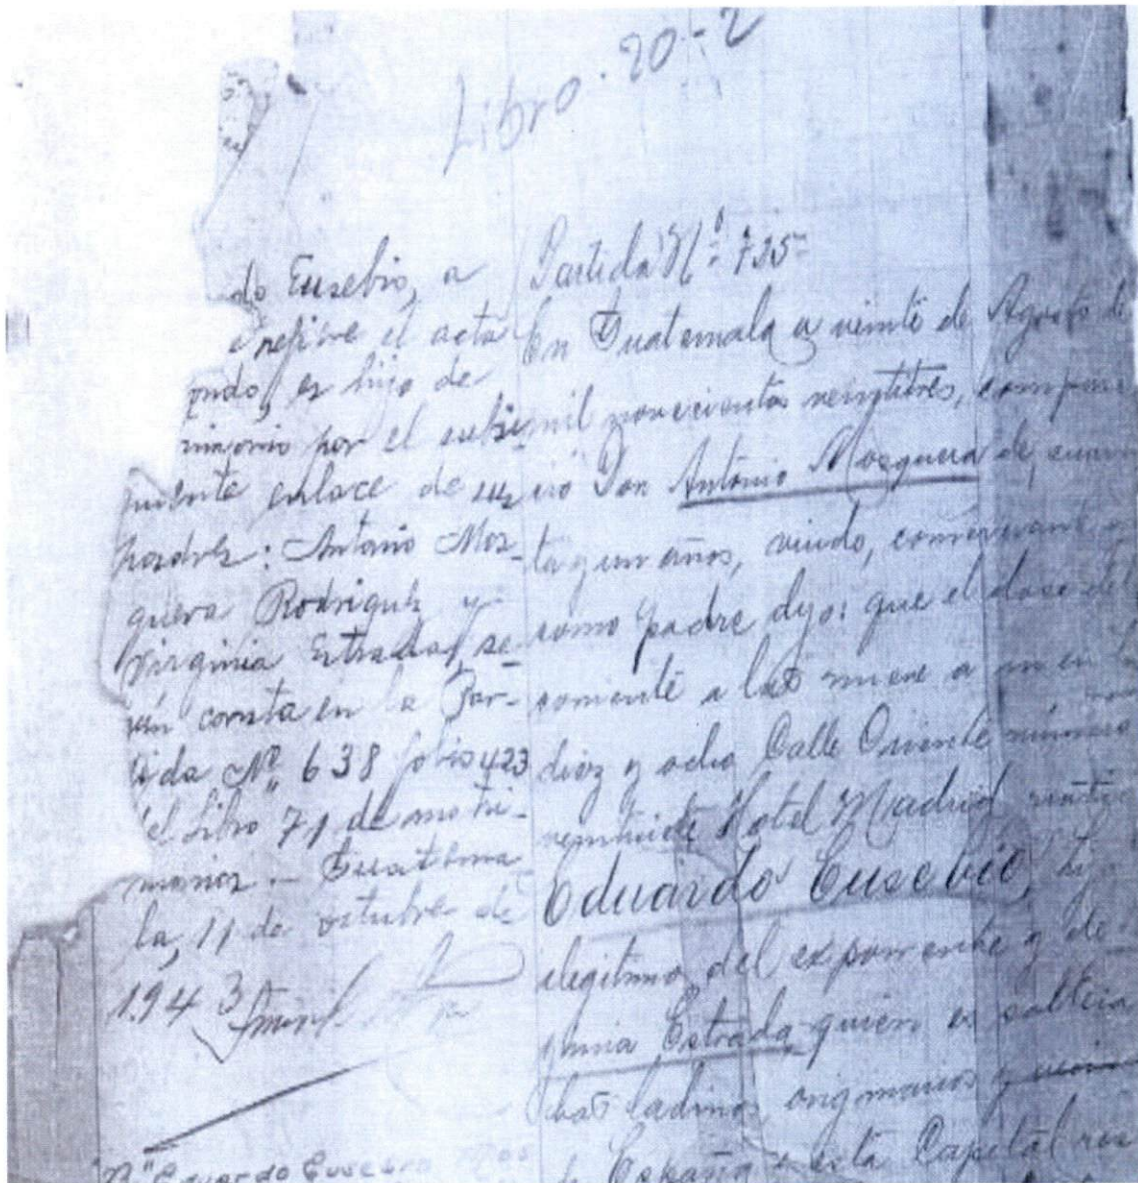 Libro. 20-2
do Eusebio, a
refiere el acta
es hijo de
por el subsi-
enlace de sus
padres: Antonio Mos-
quera Rodriguez y
Virginia Estrada, se-
gún consta en la Par-
tida Nº 638 folio 423
del Libro 71 de matri-
monios. - Guatema-
la, 11 de octubre de
1943
Partida Nº 735-
En Guatemala a veinte de Agosto de
mil novecientos veintitres, compare
ció Don Antonio Mosquera de, cuaren
ta y un años, viudo, comerciante y
como padre dijo: que el doce del
corriente a las nueve a m en la
diez y ocho Calle Oriente número
veintisiete Hotel Madrid, nació
Eduardo Eusebio, hi
ilegitimo del exponente y de
ginia Estrada quien es soltera
ladinos, originarios y
España y esta Capital res
Eduardo Eusebio Mos